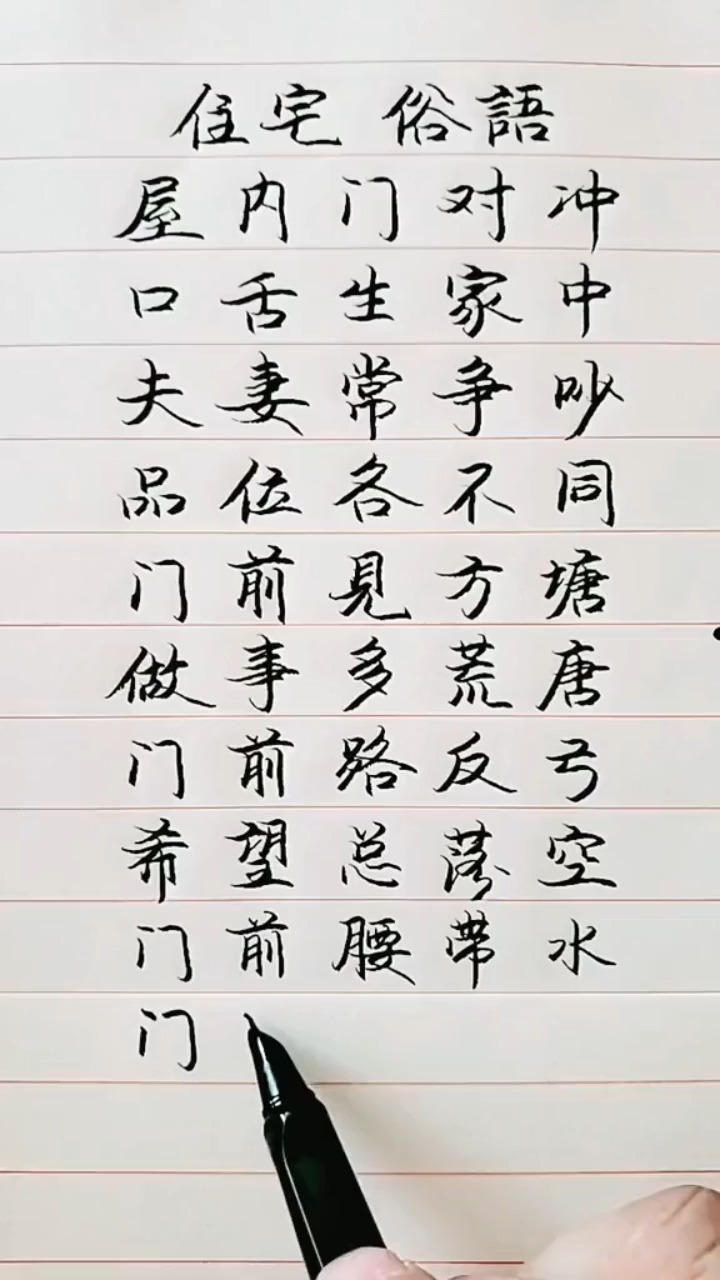 住宅 俗語
屋内门对冲
口舌生家中
夫妻常争吵
品位各不同
门前見方塘
做事多荒唐
门前路反弓
希望总落空
门前腰带水
门